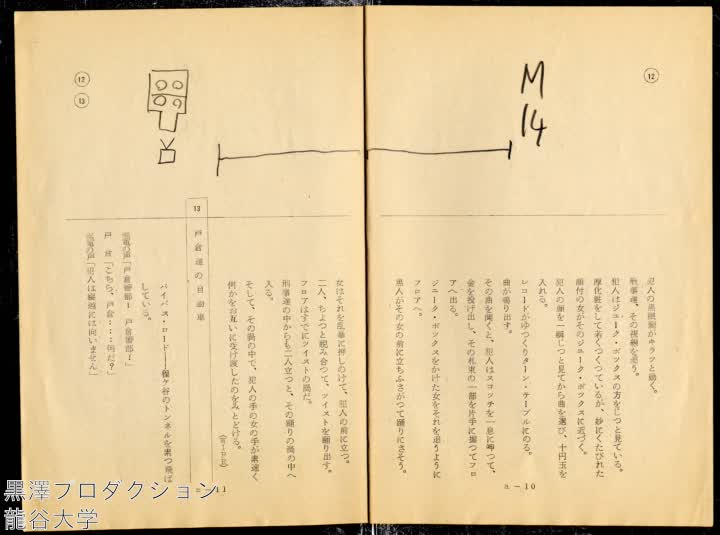 ⑫
M
14
犯人の黒眼鏡がキラッと動く。
刑事達、その視線を追う。
犯人はジューク・ボックスの方をじっと見ている。
厚化粧をして若くつくっているが、妙にくたびれた
顔付の女がそのジューク・ボックスに近づく。
犯人の顔を一瞬じっと見てから曲を選び、十円玉を
入れる。
レコードがゆっくりターン・テーブルにのる。
曲が鳴り出す。
その曲を聞くと、犯人はスコッチを一息に呷って、
金を投げ出し、その札束の一部を片手に握ってフロ
アへ出る。
ジューク・ボックスをかけた女をそれを追うように
フロアへ。
黒人がその女の前に立ちふさがって踊りにさそう。
a－10
⑫
⑬
女はそれを乱暴に押しのけて、犯人の前に立つ。
二人、ちょっと睨み合って、ツイストを踊り出す。
フロアはすでにツイストの渦だ。
刑事達の中からも二人立つと、その踊りの渦の中へ
入る。
そして、その渦の中で、犯人の手の女の手が素速く
何かをお互いに受け渡したのをみとどける。
(WIPE)
13 戸倉達の自動車
バイパス・ロード――保ケ谷のトンネルを素っ飛ば
している。
無電の声「戸倉警部！ 戸倉警部！」
戸　倉「こちら、戸倉……何だ？」
無電の声「犯人は寝蹟には向いません」
11
黒澤プロダクション
龍谷大学